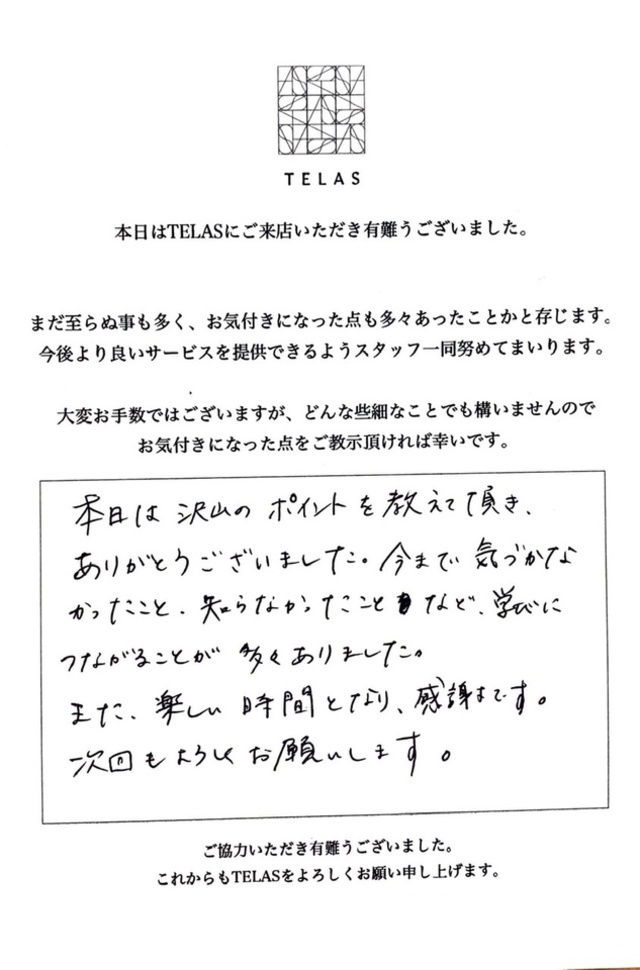 TELAS
本日はTELASにご来店いただき有難うございました。
まだ至らぬ事も多く、お気付きになった点も多々あったことかと存じます。
今後より良いサービスを提供できるようスタッフ一同努めてまいります。
大変お手数ではございますが、どんな些細なことでも構いませんので
お気付きになった点をご教示頂ければ幸いです。
本日は沢山のポイントを教えて頂き、
ありがとうございました。今まで気づかな
かったこと、知らなかったことなど、学びに
つながることが多くありました。
また、楽しい時間となり、感謝です。
次回もよろしくお願いします。
ご協力いただき有難うございました。
これからもTELASをよろしくお願い申し上げます。